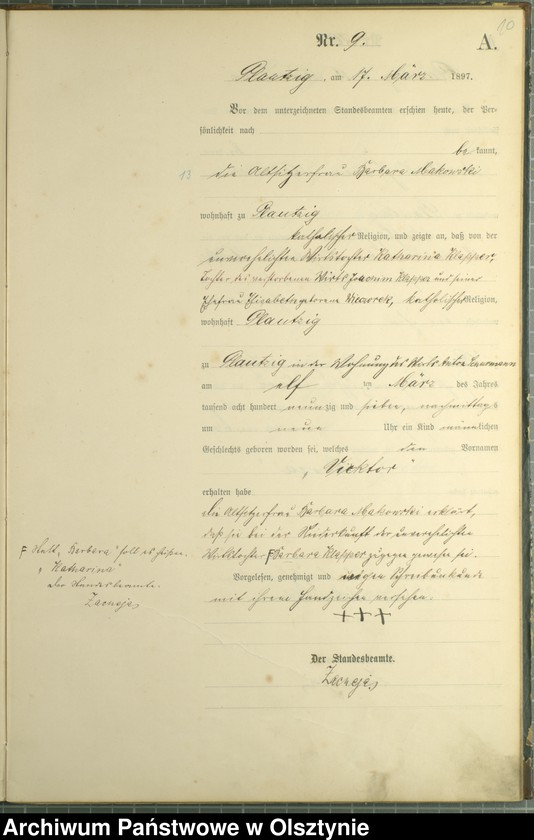 10
Nr. 9.
A.
Plautzig, am 17. März 1897.
Vor dem unterzeichneten Standesbeamten erschien heute, der Per-
sönlichkeit nach
be kannt,
13
die Altsitzerfrau Barbara Makowski
wohnhaft zu Plautzig
katholischer Religion, und zeigte an, daß von der
unverehelichten Wirtstochter Katharina Klepper,
Tochter des verstorbenen Wirts Joachim Klepper und seiner
Ehefrau Elisabeth geborene Wieczorek, katholischer Religion,
wohnhaft Plautzig
zu Plautzig in der Wohnung des Wirts Anton
am elf ten März des Jahres
tausend acht hundert neunzig und sieben, nachmittags
um neun Uhr ein Kind männlichen
Geschlechts geboren worden sei, welches den Vornamen
„Vicktor“
erhalten habe.
Die Altsitzerfrau Barbara Makowski erklärt,
daß sie bei der Niederkunft der unverehelichten
Wirtstochter F Barbara Klepper zugegen gewesen sei.
F Statt „Barbara“ soll es heißen
„Katharina“
Der Standesbeamte.
Vorgelesen, genehmigt und wegen Schreibunkunde
mit ihrem Handzeichen versehen.
+++
Der Standesbeamte.
Archiwum Państwowe w Olsztynie